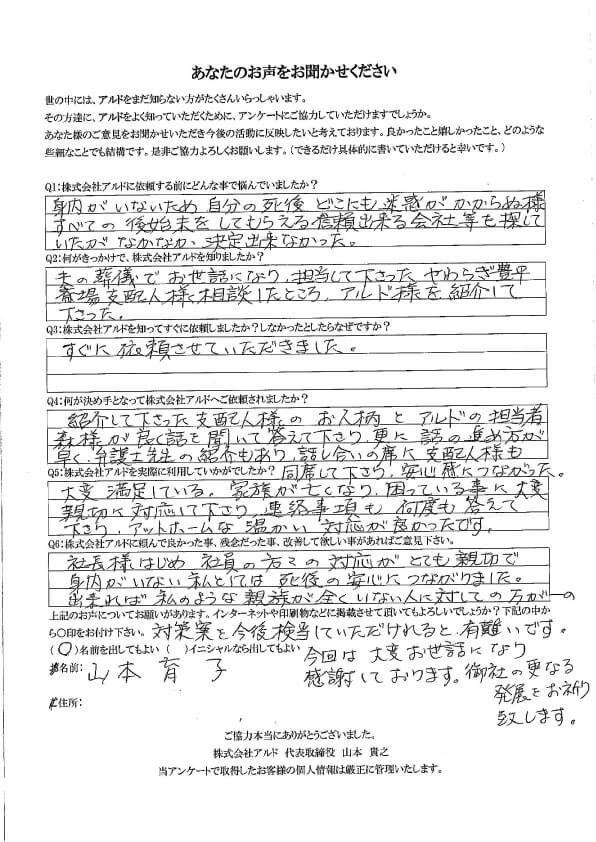 あなたのお声をお聞かせください
世の中には、アルドをまだ知らない方がたくさんいらっしゃいます。
その方達に、アルドをよく知っていただくために、アンケートにご協力していただけますでしょうか。
あなた様のご意見をお聞かせいただき今後の活動に反映したいと考えております。良かったこと嬉しかったこと、どのような
些細なことでも結構です。是非ご協力よろしくお願いします。（できるだけ具体的に書いていただけると幸いです。）
Q1：株式会社アルドに依頼する前にどんな事で悩んでいましたか？
身内がいないため 自分の死後 どこにも迷惑がかからぬ様
すべての後始末をしてもらえる信頼出来る会社等を探して
いたがなかなか 決定出来なかった。
Q2：何がきっかけで、株式会社アルドを知りましたか？
夫の葬儀でお世話になり、担当して下さった やわらぎ豊平
斎場支配人様に相談したところ、アルド様を紹介して
下さった。
Q3：株式会社アルドを知ってすぐに依頼しましたか？しなかったとしたらなぜですか？
すぐに依頼させていただきました。
Q4：何が決め手となって株式会社アルドへご依頼されましたか？
紹介して下さった支配人様のお人柄とアルドの担当者
森様が良く話を聞いて答えて下さり、更に話の進め方が
早く、弁護士先生の紹介もあり、話し合いの席に支配人様も
Q5：株式会社アルドを実際に利用していかがでしたか？ 同席して下さり、安心感につながった。
大変満足している。家族が亡くなり、困っている事に大変
親切に対応して下さり、連絡事項も何度も答えて
下さり、アットホームな温かい対応が良かったです。
Q6：株式会社アルドに頼んで良かった事、残念だった事、改善して欲しい事があればご意見下さい。
社長様はじめ 社員の方々の対応がとても親切で
身内がいない私としては 死後の安心につながりました。
出来れば私のような親族が全くいない人に対しての万が一の
上記のお声についてお願いがあります。インターネットや印刷物などに掲載させて頂いてもよろしいでしょうか？下記の中か
ら○印をお付け下さい。 対策案を今後検当していただけれると、有難いです。
（○）名前を出してもよい （ ）イニシャルなら出してもよい
お名前： 山本育子 今回は大変お世話になり
感謝しております。御社の更なる
発展をお祈り
ご住所： 致します。
ご協力本当にありがとうございました。
株式会社アルド 代表取締役 山本 貴之
当アンケートで取得したお客様の個人情報は厳正に管理いたします。